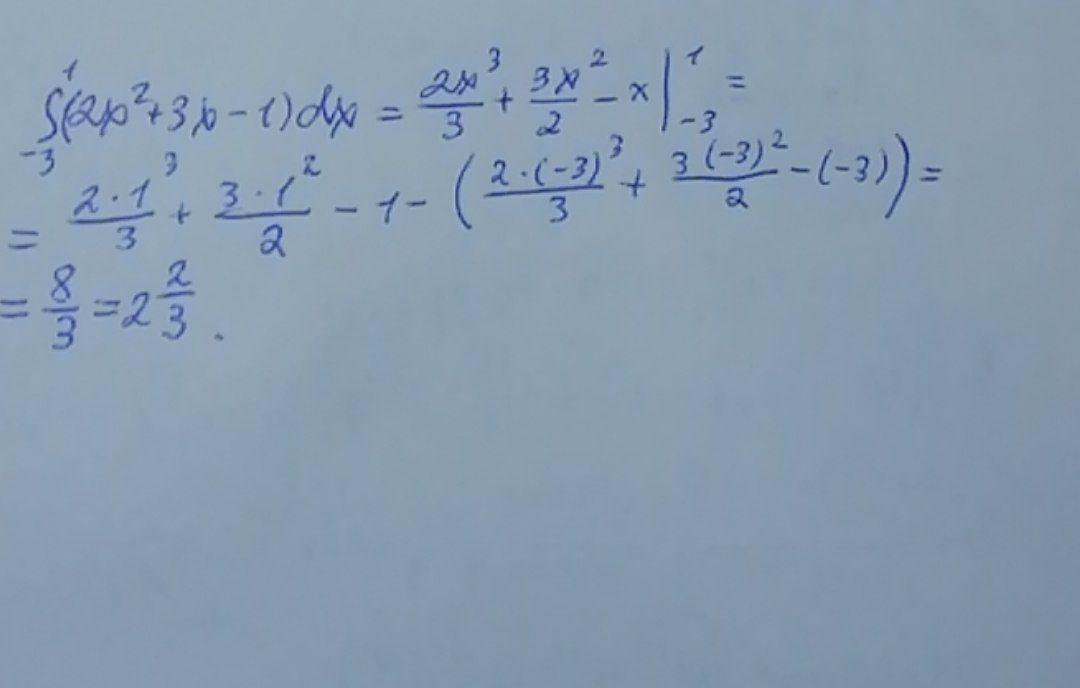 ∫₋₃¹(2x²+3x-1)dx = 2x³/3 + 3x²/2 - x |₋₃¹ =
= 2·1³/3 + 3·1²/2 - 1 - (2·(-3)³/3 + 3(-3)²/2 - (-3)) =
= 8/3 = 2 2/3.